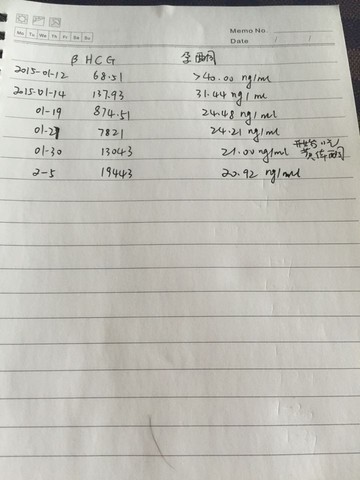 Memo No.
Mo Tu We Th Fr Sa Su
Date / /
β HCG 孕酮
2015-01-12 68.51 >40.00 ng/ml
2015-01-14 137.93 31.44 ng/ml
01-19 874.51 24.48 ng/ml
01-27 7821 24.21 ng/ml
01-30 13043 21.00 ng/ml 开始
2-5 19443 20.92 ng/ml